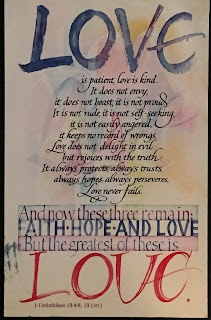 LOVE
is patient, love is kind.
It does not envy,
it does not boast, it is not proud.
It is not rude, it is not self-seeking,
it is not easily angered,
it keeps no record of wrongs.
Love does not delight in evil
but rejoices with the truth.
It always protects, always trusts,
always hopes, always perseveres.
Love never fails.
And now these three remain:
FAITH·HOPE·AND LOVE
But the greatest of these is
LOVE.
1 Corinthians 13:4-8, 13 (NIV)